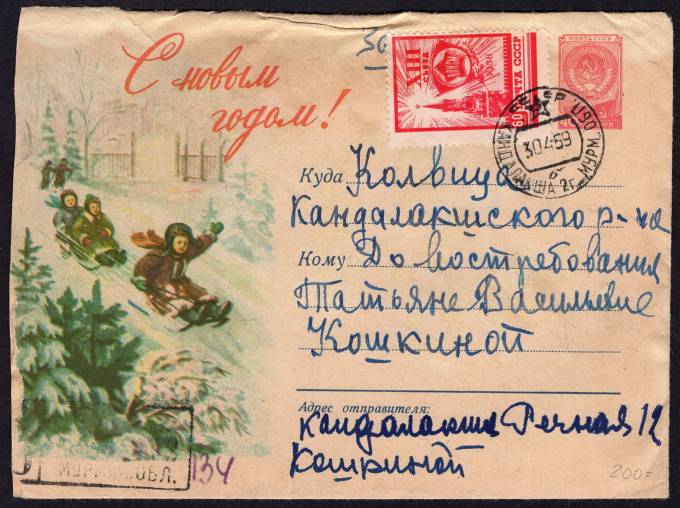 С новым
годом!
За
XIII
СЪЕЗД
ВЛКСМ
1958
ПОЧТА СССР
60
ПОЧТА СССР
40
30459
б
КАНДАЛАКША 2 г. МУРМ.
Куда Колвица
Кандалакшского р-на
Кому До востребования
Татьяне Васильевне
Кошкиной
Адрес отправителя:
Кандалакша Речная 12
Кошкиной
МУРМАН. ОБЛ.
134
200=